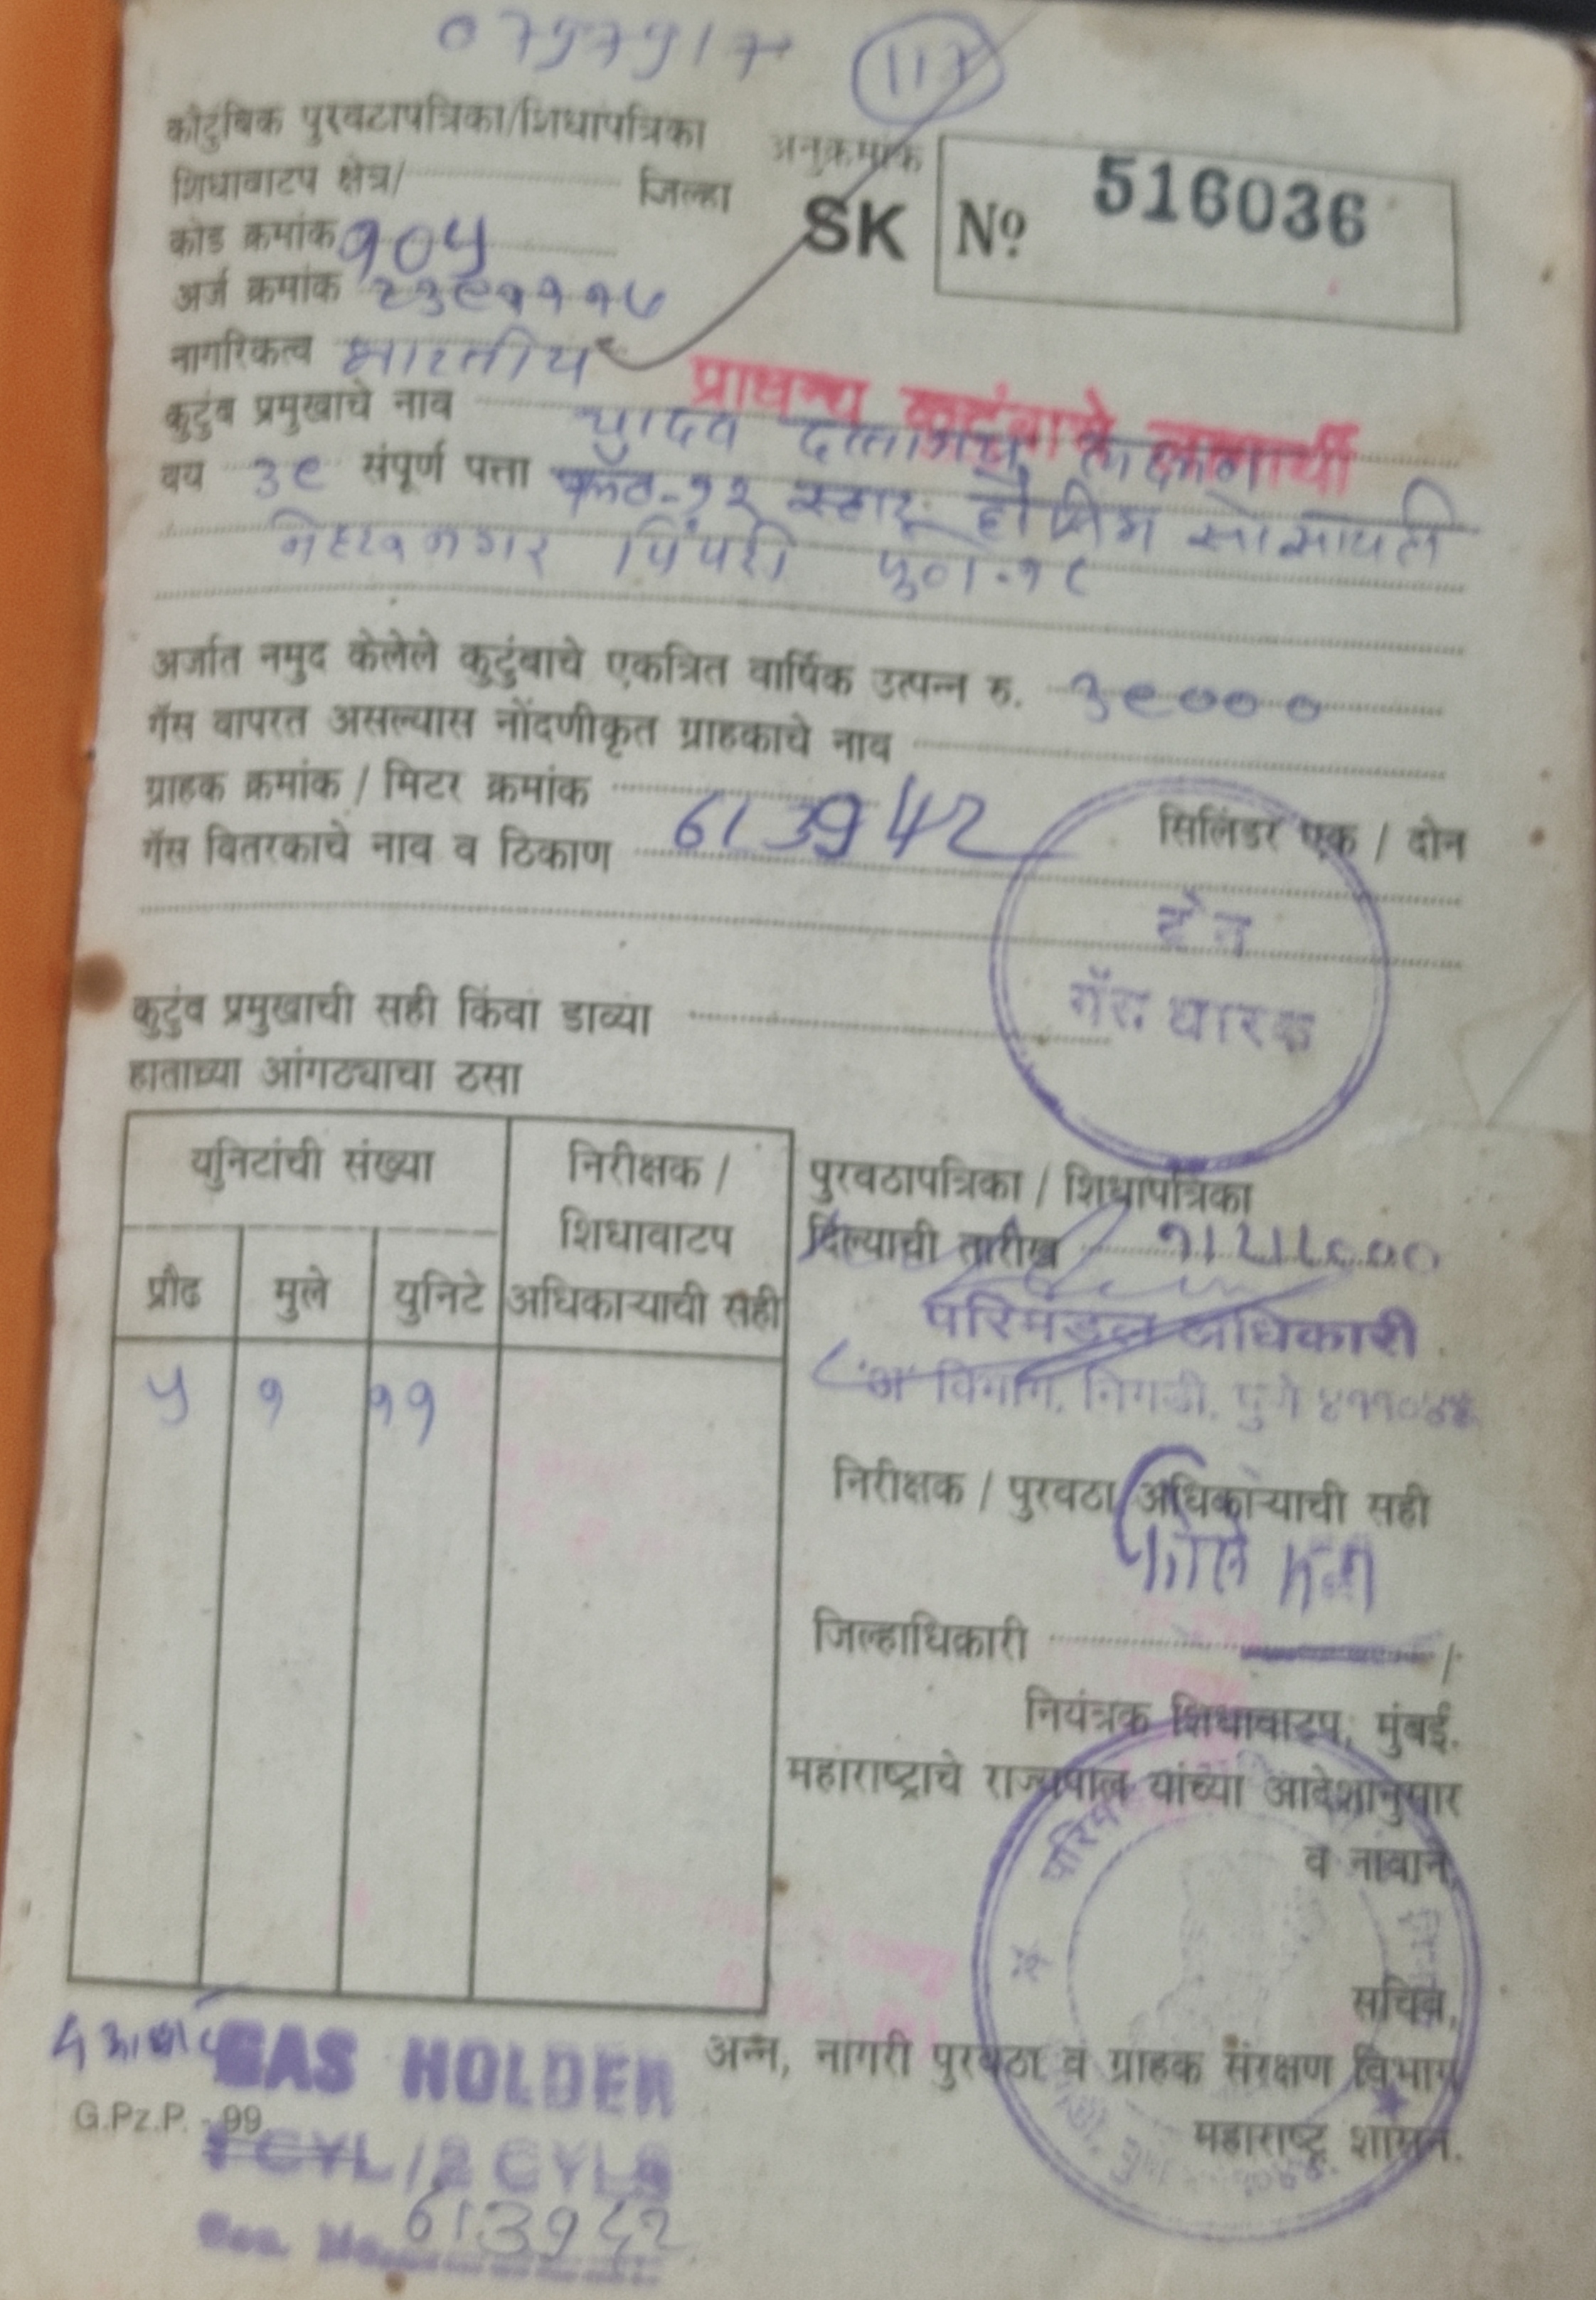 0797917 117
कौटुंबिक पुरवठापत्रिका/शिधापत्रिका
अनुक्रमांक
शिधावाटप क्षेत्र/ जिल्हा
SK Nº 516036
कोड क्रमांक १०५
अर्ज क्रमांक २३९१११७
नागरिकत्व भारतीय
प्राधान्य कुटुंबाचे लाभार्थी
कुटुंब प्रमुखाचे नाव यादव दत्तात्रय
वय ३९ संपूर्ण पत्ता स्टार हौसिंग सोसायटी
नेहरूनगर पिंपरी पुणे-१८
अर्जात नमुद केलेले कुटुंबाचे एकत्रित वार्षिक उत्पन्न रु. ३९०००
गॅस वापरत असल्यास नोंदणीकृत ग्राहकाचे नाव
ग्राहक क्रमांक / मिटर क्रमांक 613942
सिलिंडर एक / दोन
गॅस वितरकाचे नाव व ठिकाण
दोन
गॅस धारक
कुटुंब प्रमुखाची सही किंवा डाव्या
हाताच्या आंगठ्याचा ठसा
युनिटांची संख्या
निरीक्षक / शिधावाटप अधिकाऱ्याची सही
प्रौढ मुले युनिटे
५ १ ११
पुरवठापत्रिका / शिधापत्रिका
दिल्याची तारीख
परिमंडल अधिकारी
'अ' विभाग, निगडी, पुणे ४११०४४
निरीक्षक / पुरवठा अधिकाऱ्याची सही
जिल्हाधिकारी
नियंत्रक शिधावाटप, मुंबई.
महाराष्ट्राचे राज्यपाल यांच्या आदेशानुसार
व नांवाने,
सचिव,
अन्न, नागरी पुरवठा व ग्राहक संरक्षण विभाग
महाराष्ट्र शासन.
GAS HOLDER
G.Pz.P. - 99
1 CYL / 2 CYLS
Con. No. 613942